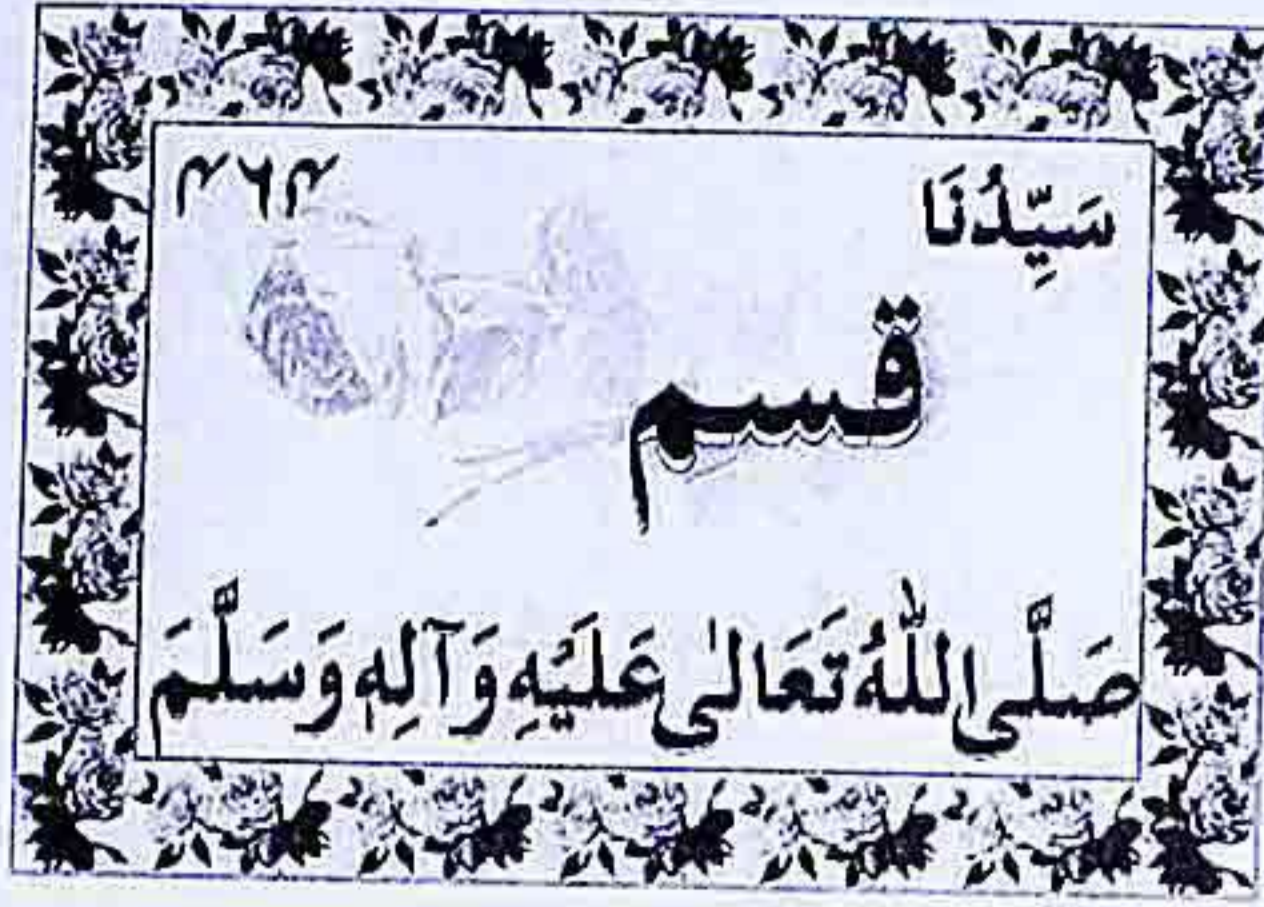 سَيِّدُنَا ۴۶۴
قسم
صَلَّى اللّٰهُ تَعَالٰى عَلَيْهِ وَآلِهٖ وَسَلَّمَ